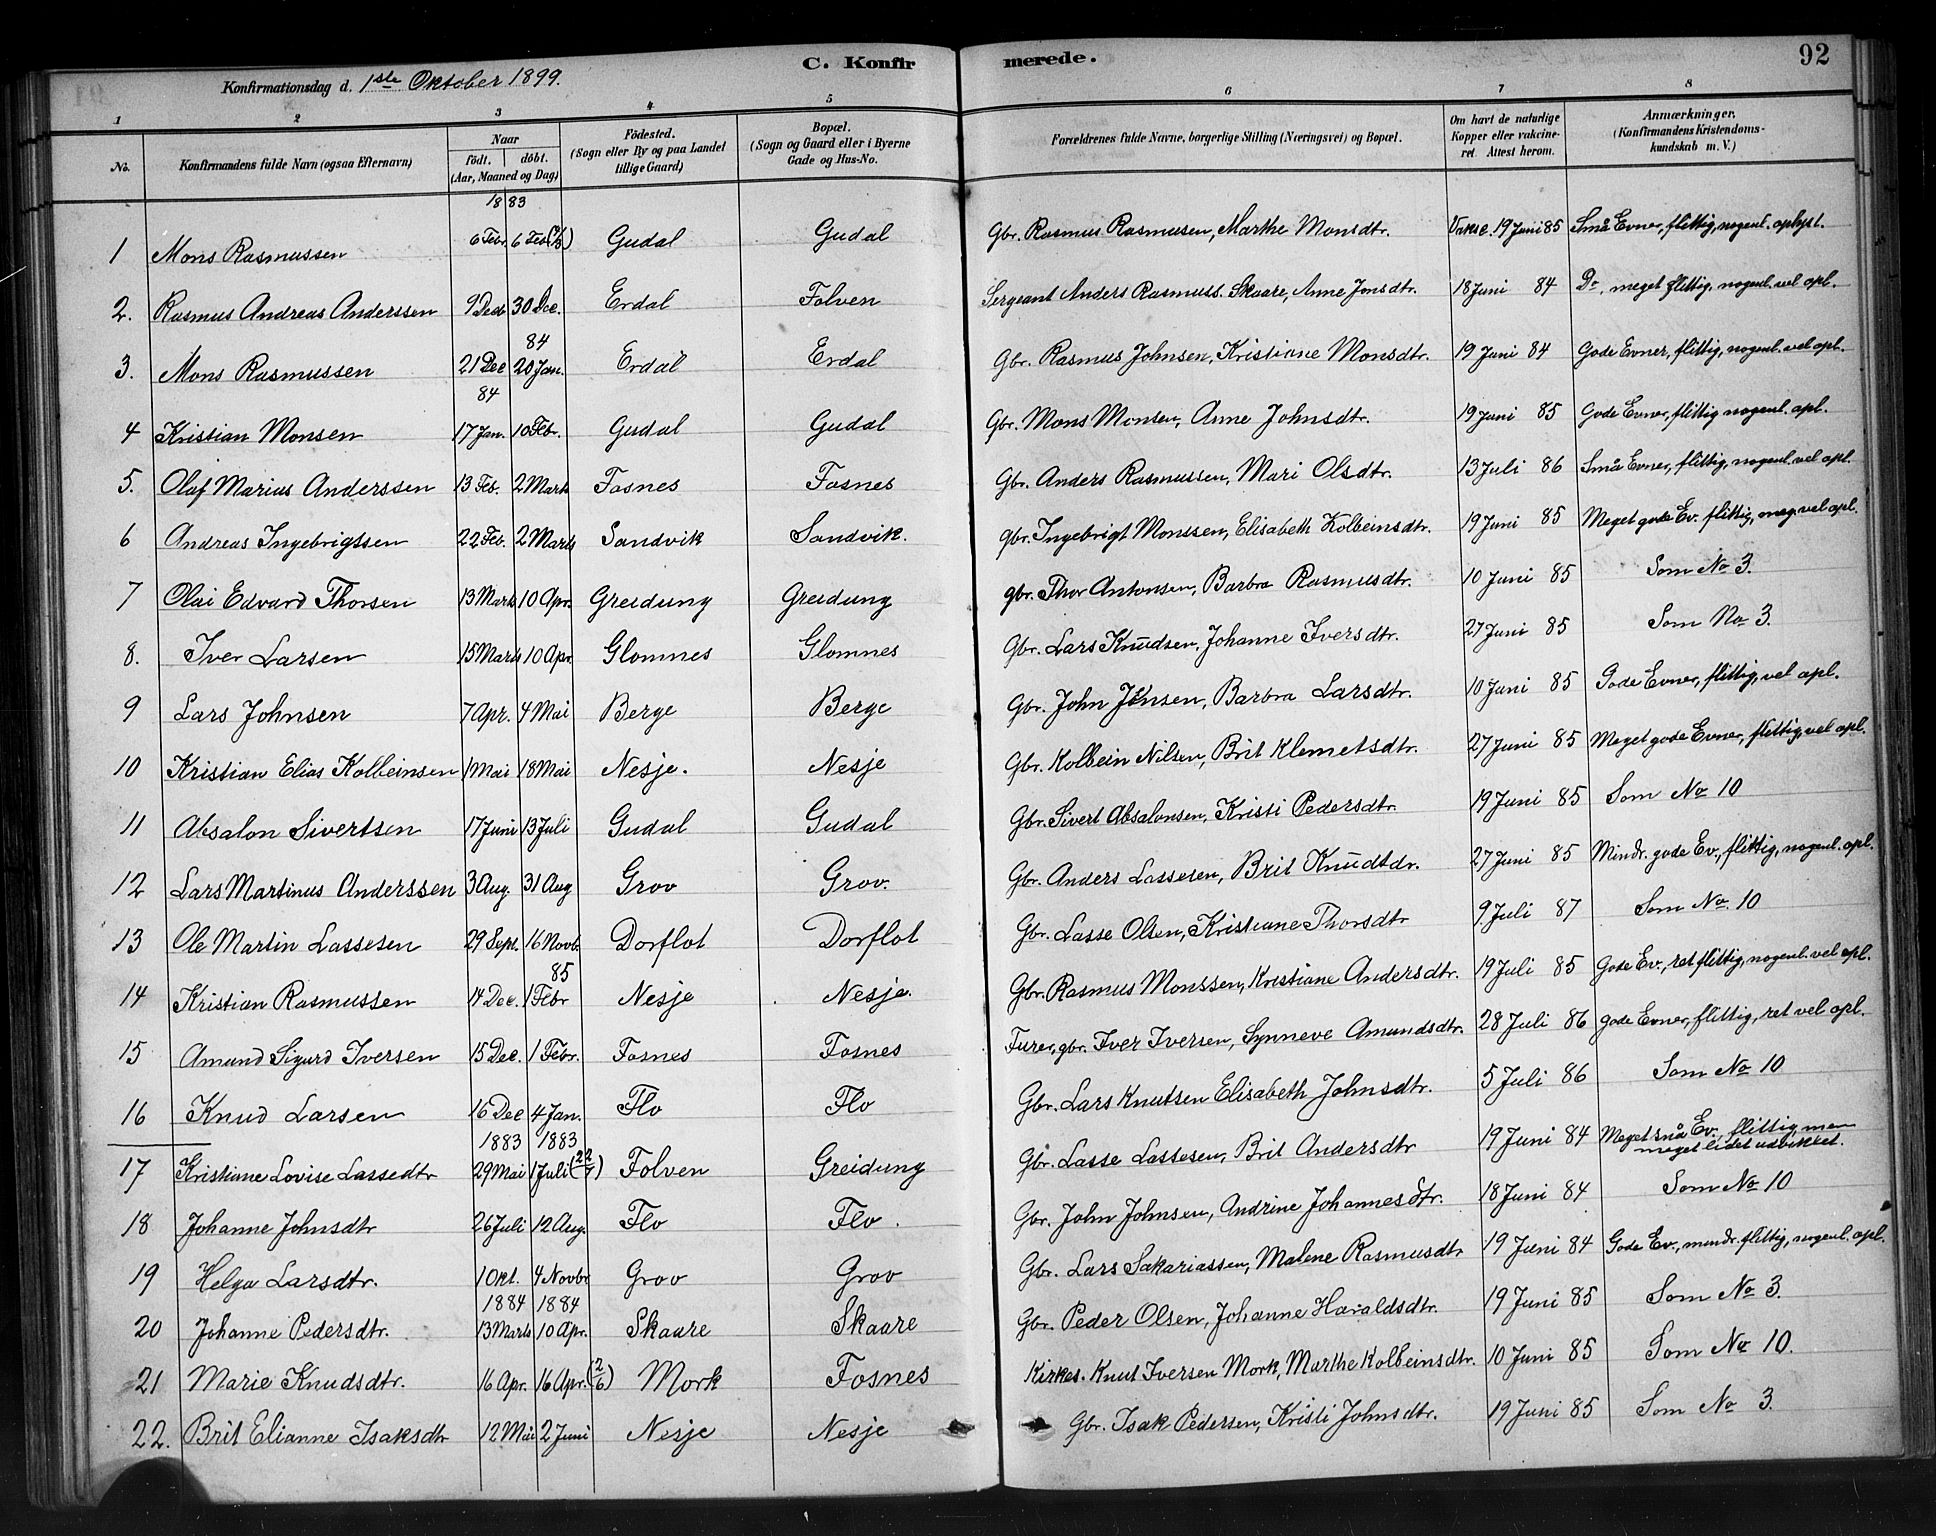 C. Konfirmerede. 92
Konfirmationsdag d. 1ste Oktober 1899.
1 2 3 4 5 6 7 8
No. Konfirmandens fulde Navn (ogsaa Efternavn) Naar födt. döbt. (Aar, Maaned og Dag) Födested. (Sogn eller By og paa Landet tillige Gaard) Bopæl. (Sogn og Gaard eller i Byerne Gade og Hus-No. Forældrenes fulde Navne, borgerlige Stilling (Næringsvei) og Bopæl. Om havt de naturlige Kopper eller vakcineret Attest herom. Anmærkninger. (Konfirmandens Kristendomskundskab m. V.)
1883
1 Mons Rasmussen 6 Febr 6 Feb Gudal Gudal Gbr. Rasmus Rasmussen, Marthe Monsdtr. Vaksc. 19 Juni 85 Små Evner, flittig, nogenl. oplyst.
2. Rasmus Andreas Anderssen 9 Decb 30 Dec. Erdal Folven Sergeant Anders Rasmuss. Skaare, Anne Jonsdtr. 18 Juni 84 Do, meget flittig, nogenl. vel opl.
84
3. Mons Rasmussen 21 Dec 20 Jan. Erdal Erdal Gbr. Rasmus Johnsen, Kristiane Monsdtr. 19 Juni 84 Gode Evner, flittig, nogenl. vel opl.
84
4 Kristian Monsen 17 Jan. 10 Febr. Gudal Gudal Gbr. Mons Monsen, Anne Johnsdtr. 19 Juni 85 Gode Evner, flittig nogenl. opl.
5. Olaf Marius Anderssen 13 Feb. 2 Marts Fosnes Fosnes Gbr. Anders Rasmussen, Mari Olsdtr. 13 Juli 86 Små Evner, flittig, nogenl. vel opl.
6 Andreas Ingebrigtsen 22 Feb. 2 Marts Sandvik Sandvik. gbr. Ingebrigt Monssen, Elisabeth Kolbeinsdtr. 19 Juni 85 Meget gode Ev. flittig, meg. vel opl.
7 Olai Edvard Thorsen 13 Marts 10 Apr. Greidung Greidung gbr. Thor Antonsen, Barbra Rasmusdtr. 10 Juni 85 Som No 3.
8. Iver Larsen 15 Marts 10 Apr. Glomnes Glomnes Gbr. Lars Knudsen, Johanne Iversdtr. 27 Juni 85 Som No 3.
9 Lars Johnsen 7 Apr. 4 Mai Berge Berge Gbr. John Jonsen, Barbra Larsdtr. 10 Juni 85 Gode Evner, flittig, vel opl.
10 Kristian Elias Kolbeinsen 1 Mai 18 Mai Nesje. Nesje Gbr. Kolbein Nilsen, Brit Klemetsdtr. 27 Juni 85 Meget gode Evner, flittig, vel opl.
11 Absalon Sivertsen 17 Juni 13 Juli Gudal Gudal Gbr. Sivert Absalonsen, Kristi Pedersdtr. 19 Juni 85 Som No 10
12 Lars Martinus Anderssen 3 Aug. 31 Aug Grov Grov. Gbr. Anders Lassesen, Brit Knudtdr. 27 Juni 85 Mindr. gode Ev., flittig, nogenl. opl.
13 Ole Martin Lassesen 29 Sept. 16 Novb. Dorflot Dorflot Gbr. Lasse Olsen, Kristiane Thorsdtr 9 Juli 87 Som No. 10
85
14 Kristian Rasmussen 14 Dec. 1 Febr Nesje Nesje. Gbr. Rasmus Monssen, Kristiane Andersdtr. 19 Juli 85 Gode Ev., ret flittig, nogenl. vel opl.
15 Amund Sigurd Iversen 15 Dec. 1 Febr. Fosnes Fosnes Furer, gbr. Iver Iversen, Synneve Amundsdtr. 28 Juli 86 Gode Evner, flittig, ret vel opl.
16 Knud Larsen 16 Dec 4 Jan. Flo Flo Gbr. Lars Knutsen Elisabeth Johnsdtr. 5 Juli 86 Som No 10
1883 1883
17 Kristiane Lovise Lassedtr 29 Mai 1 Juli (22/7) Folven Greidung Gbr. Lasse Lassesen, Brit Andersdtr 19 Juni 84 Meget små Ev., flittig, men meget lidet udviklet.
18 Johanne Johnsdtr 26 Juli 12 Aug. Flo Flo. Gbr. John Johnsen, Andrine Johannesdtr. 18 Juni 84 Som No 10
19 Helga Larsdtr. 1 Okt. 4 Novbr Grov Grov Gbr. Lars Sakariassen, Malene Rasmusdtr 19 Juni 84 Gode Ev., mindr. flittig, nogenl. opl.
1884 1884
20 Johanne Pedersdtr. 13 Marts 10 Apr. Skaare Skaare Gbr. Peder Olsen, Johanne Haraldsdtr. 19 Juni 85 Som No 3.
21 Marie Knudsdtr. 16 Apr. 16 Apr. (2/6) Mork Fosnes Kirkes. Knut Iversen Mork, Marthe Kolbeinsdtr. 10 Juni 85 Som No 10.
22. Brit Elianne Isaksdtr 12 Mai 2 Juni Nesje Nesje Gbr. Isak Pedersen, Kristi Johnsdtr. 19 Juni 85 Som No 3.